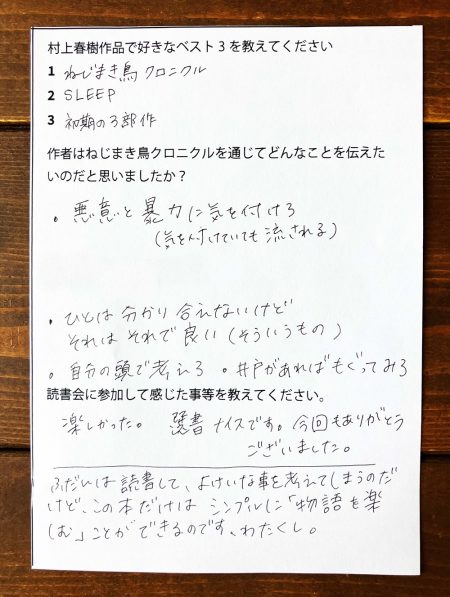 村上春樹作品で好きなベスト3を教えてください
1 ねじまき鳥クロニクル
2 SLEEP
3 初期の3部作
作者はねじまき鳥クロニクルを通じてどんなことを伝えた
いのだと思いましたか？
・悪意と暴力に気を付けろ
(気を付けていても流される)
・ひとは分かり合えないけど
それはそれで良い(そういうもの)
・自分の頭で考えろ ・井戸があればもぐってみろ
読書会に参加して感じた事等を教えてください。
楽しかった。 選書ナイスです。今回もありがとう
ございました。
ふだんは読書して、よけいな事を考えてしまうのだ
けど、この本だけはシンプルに「物語を楽
しむ」ことができるのです、わたくし。